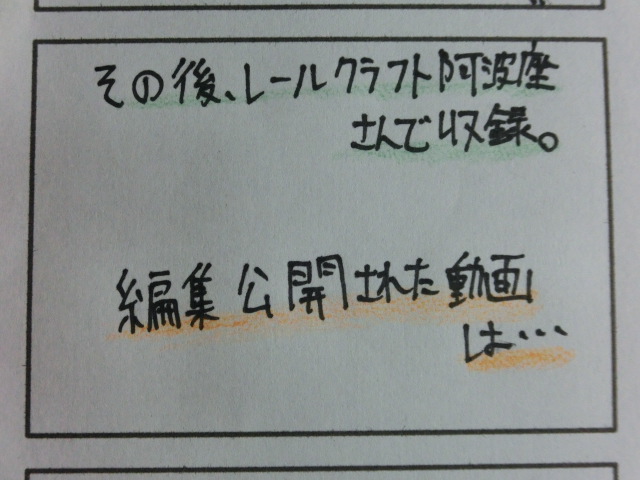 その後、レールクラフト阿波座
さんで収録。
編集公開された動画
は…